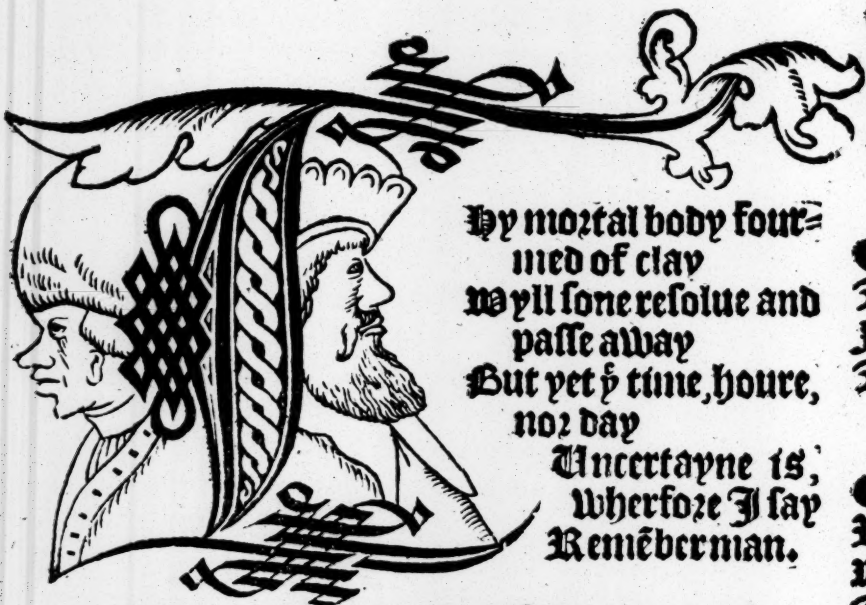 Thy mortal body four⸗
med of clay
Wyll sone resolue and
passe away
But yet yͤ time, houre,
nor day
Uncertayne is,
wherfore I say
Remēber man.